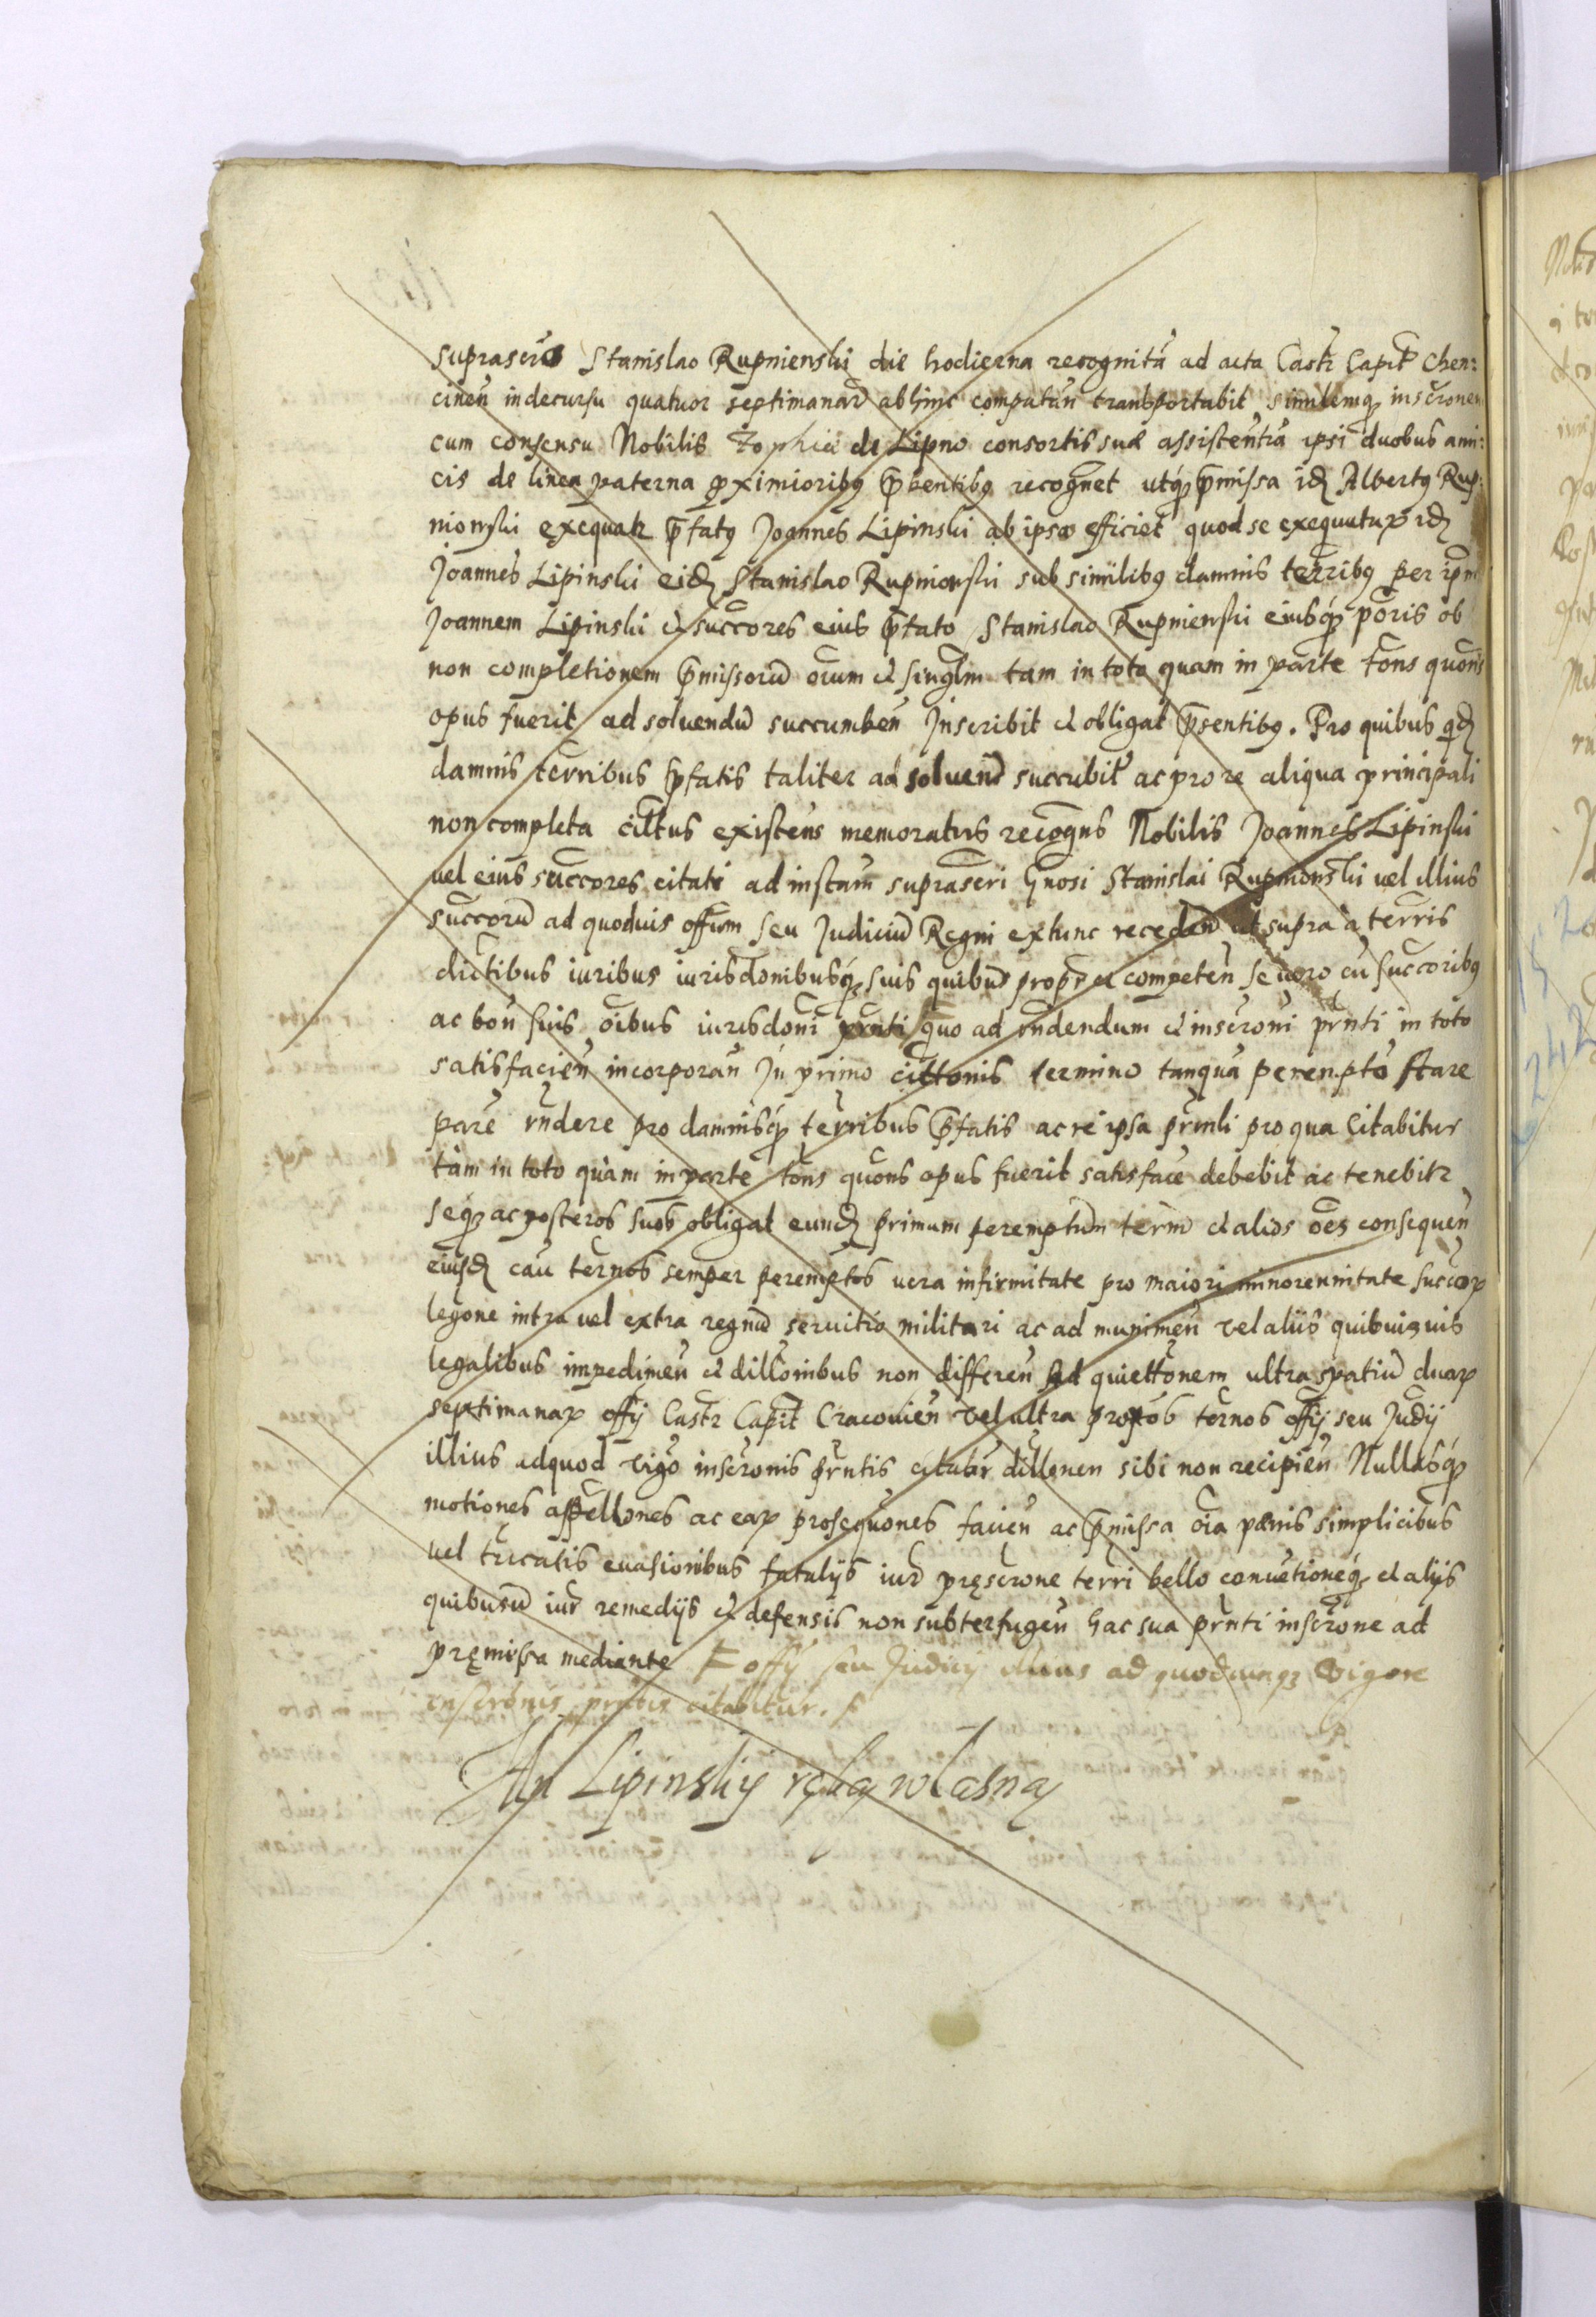 suprascr̃o Stanislao Rupnienski die hodierna recognitã ad acta Castr̃ Capit̃ Chen:
cineñ in decursu quatuor septimanarũ abhinc computañ transportabit similemq̃ inscr̃onem
cum consensu Nobilis Zophiæ de Lipno consortis suæ assistentia ipsi duobus ami:
cis de linea paterna ꝓximioribꝰ p̃bentibꝰ recogñet utq̃ p̃missa idẽ Albertꝰ Rup:
nionski exequatr p̃fatꝰ Joannes Lipinski ab ipso efficiet quod se exequuturꝝ idẽ
Joannes Lipinski eidẽ Stanislao Rupnionski sub similibꝰ damnis terribꝰ per ip̃m
Joannem Lipinski et succores eius p̃fato Stanislao Rupnienski eiusq̃ põris ob
non completionem p̃missorũ oium et singlm̃ tam in toto quam in parte tõns quõns
opus fuerit ad soluendũ succumbeñ Inscribit et obligat p̃sentibꝰ. Pro quibus qd̃
damnis terribus p̃fatis taliter ad soluend̃ succubit̃ ac pro re aliqua principali
non completa cittus existens memoratus recogñs Nobilis Joannes Lipinski
vel eius succores citati ad instam̃ suprascri Gnosi Stanislai Rupnionski vel illius
succorũ ad quoduis offum seu Judiciũ Regni extunc recedeñ ut supra a terris
dictibus iuribus iurisdonibusq̃ suis quibusũ propr̃ et competeñ se vero cũ succoribꝰ
ac boñ suis oibus iurisdoni prñti quo ad rñdendum et inscroni prñti in toto
satisfacieñ incorporañ Iñ primo cittonis termino tanquã perempto stare
parẽ rñdere pro damnisq̃ terribus p̃fatis ac re ipsa prñli pro qua citabitur
tàm in toto quàm in parte tõns quõns opus fuerit satisfacẽ debebit ac tenebitr
seq̃ ac posteros suos obligat eundẽ primum peremptum term̃ et alios oẽs consequeñ
eiusdẽ cau ternos semper peremptos vera infirmitate pro maiori minorennitate succoꝝ
legone intra vel extra regnũ seruitio militari ac ad munimeñ vel aliis quibusuis
legalibus impedimeñ et dillõnibus non differeñ Ad quiettonem ultra spatiũ duaꝝ
septimanaꝝ offy Castr̃ Capit̃ Cracouieñ vel ultra ternos offy seu Judy
illius ad quod vigõ inscronis prñtis citatur dillonen sibi non recipieñ Nullasq̃
motiones appellones ac eaꝝ prosequones facieñ ac p̃missa oĩa pænis simplicibus
vel evasionibus fatalijs iur̃ pręscrone terri bello conuetioneq̃ et alijs
quibusũ iur̃ remedijs et defensis non subterfugeñ hac sua prñti inscrone ad
pręmissa mediante offy seu Judicij illius ad quodcunq̃ vigore
inscronis prñtis citabitur.
Jan Lipinskij ręką własną